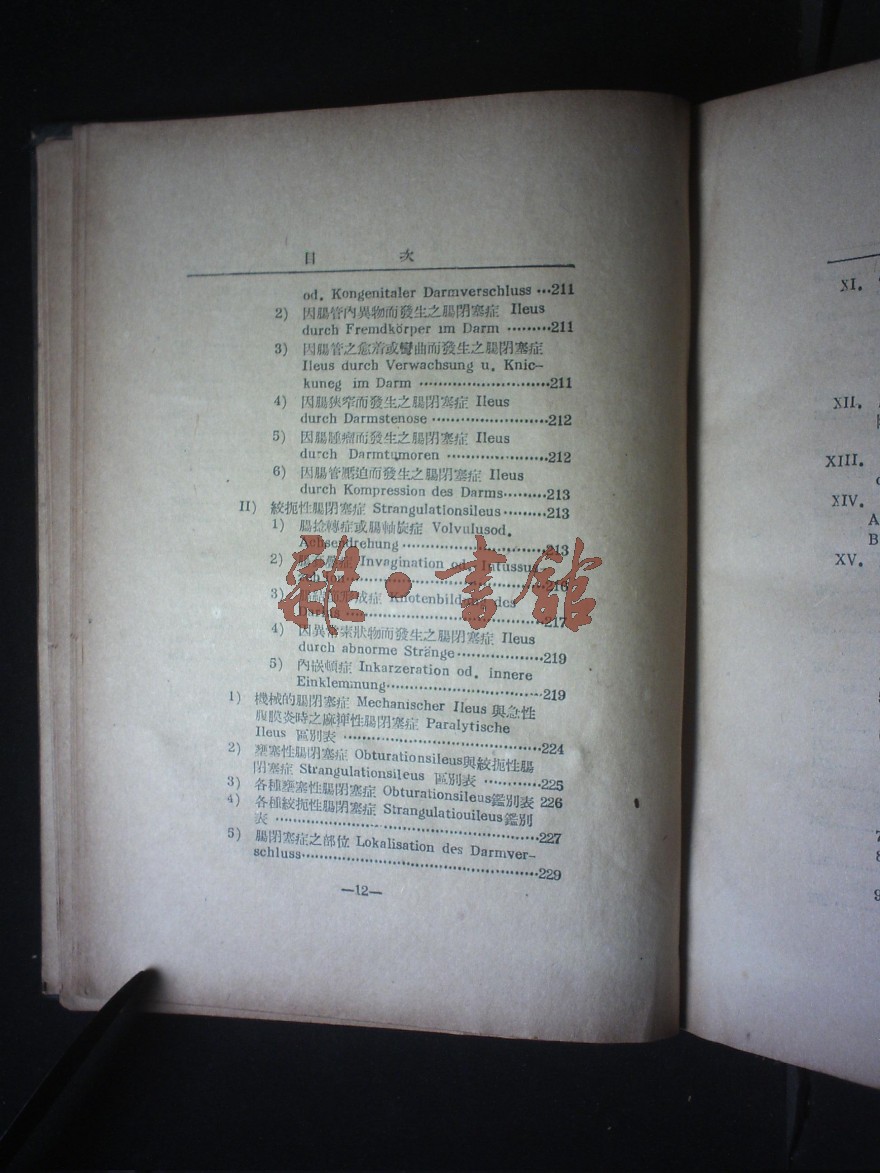 目 次
od. Kongenitaler Darmverschluss …211
2) 因腸管內異物而發生之腸閉塞症 Ileus
durch Fremdkörper im Darm ………211
3) 因腸管之愈着或彎曲而發生之腸閉塞症
Ileus durch Verwachsung u. Knic-
kuneg im Darm ………………………211
4) 因腸狹窄而發生之腸閉塞症 Ileus
durch Darmstenose ……………………212
5) 因腸腫瘤而發生之腸閉塞症 Ileus
durch Darmtumoren …………………212
6) 因腸管壓迫而發生之腸閉塞症 Ileus
durch Kompression des Darms………213
II) 絞扼性腸閉塞症 Strangulationsileus………213
1) 腸捻轉症或腸軸旋症 Volvulusod.
Achsendrehung…………………………213
2) Invagination od. Intussus-
216
3) Knotenbildung des
Darms……………………………………217
4) 因異常索狀物而發生之腸閉塞症 Ileus
durch abnorme Stränge………………219
5) 內嵌頓症 Inkarzeration od. innere
Einklemmung……………………………219
1) 機械的腸閉塞症 Mechanischer Ileus 與急性
腹膜炎時之麻痺性腸閉塞症 Paralytische
Ileus 區別表 ……………………………………224
2) 壅塞性腸閉塞症 Obturationsileus與絞扼性腸
閉塞症 Strangulationsileus 區別表 …………225
3) 各種壅塞性腸閉塞症 Obturationsileus鑑別表 226
4) 各種絞扼性腸閉塞症 Strangulatiouileus鑑別
表 …………………………………………………227
5) 腸閉塞症之部位 Lokalisation des Darmver-
schluss……………………………………………229
—12—
雜·書館
XI.
XII.
XIII.
XIV.
A
B
XV.
7
8
9